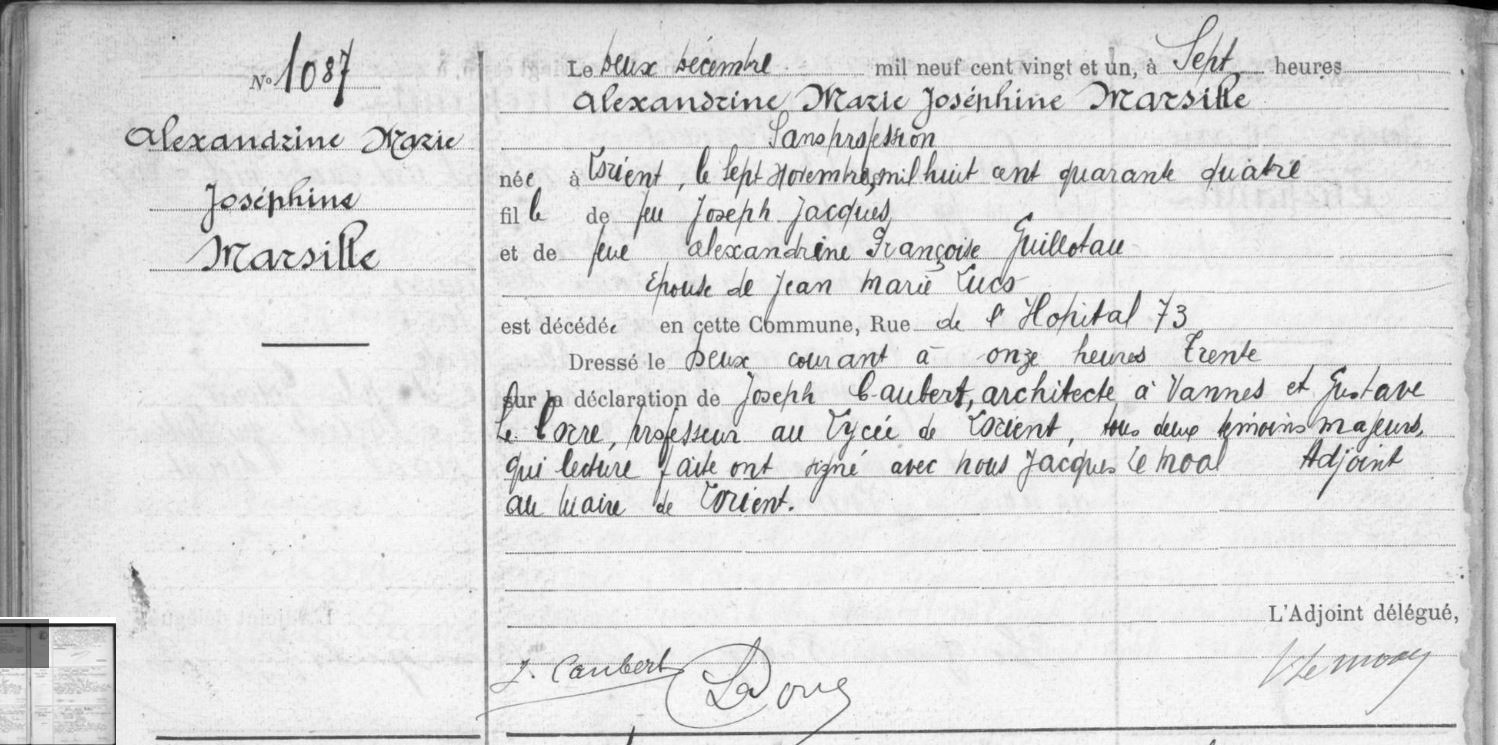 N° 1087
Alexandrine Marie
Joséphine
Marsille
Le deux décembre mil neuf cent vingt et un, à Sept heures
Alexandrine Marie Joséphine Marsille
Sans profession
née à Lorient, le sept Novembre mil huit cent quarante quatre
fille de feu Joseph Jacques
et de feue Alexandrine Françoise Guillotau
Epouse de Jean Marie Lucs
est décédée en cette Commune, Rue de l'Hopital 73
Dressé le deux courant à onze heures trente
sur la déclaration de Joseph Caubert, architecte à Vannes et Gustave
Le professeur au Lycée de Lorient, tous deux témoins majeurs,
qui lecture faite ont signé avec nous Jacques Le Moal Adjoint
au Maire de Lorient.
L'Adjoint délégué,
J. Caubert
Le Moal